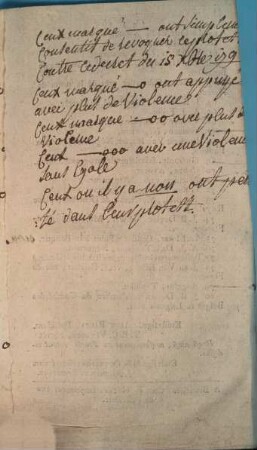 Ceux marqué — ont simplem
Consentit de revoquer
Contre ce decret du 15 Xbre
Ceux marqué —o ont appuyé
avec plus de Violence
Ceux marque —oo avec plus de
Violence
Ceux —ooo avec une Violen
sans Egale
Ceux ou il y a non ont per
té dans leur